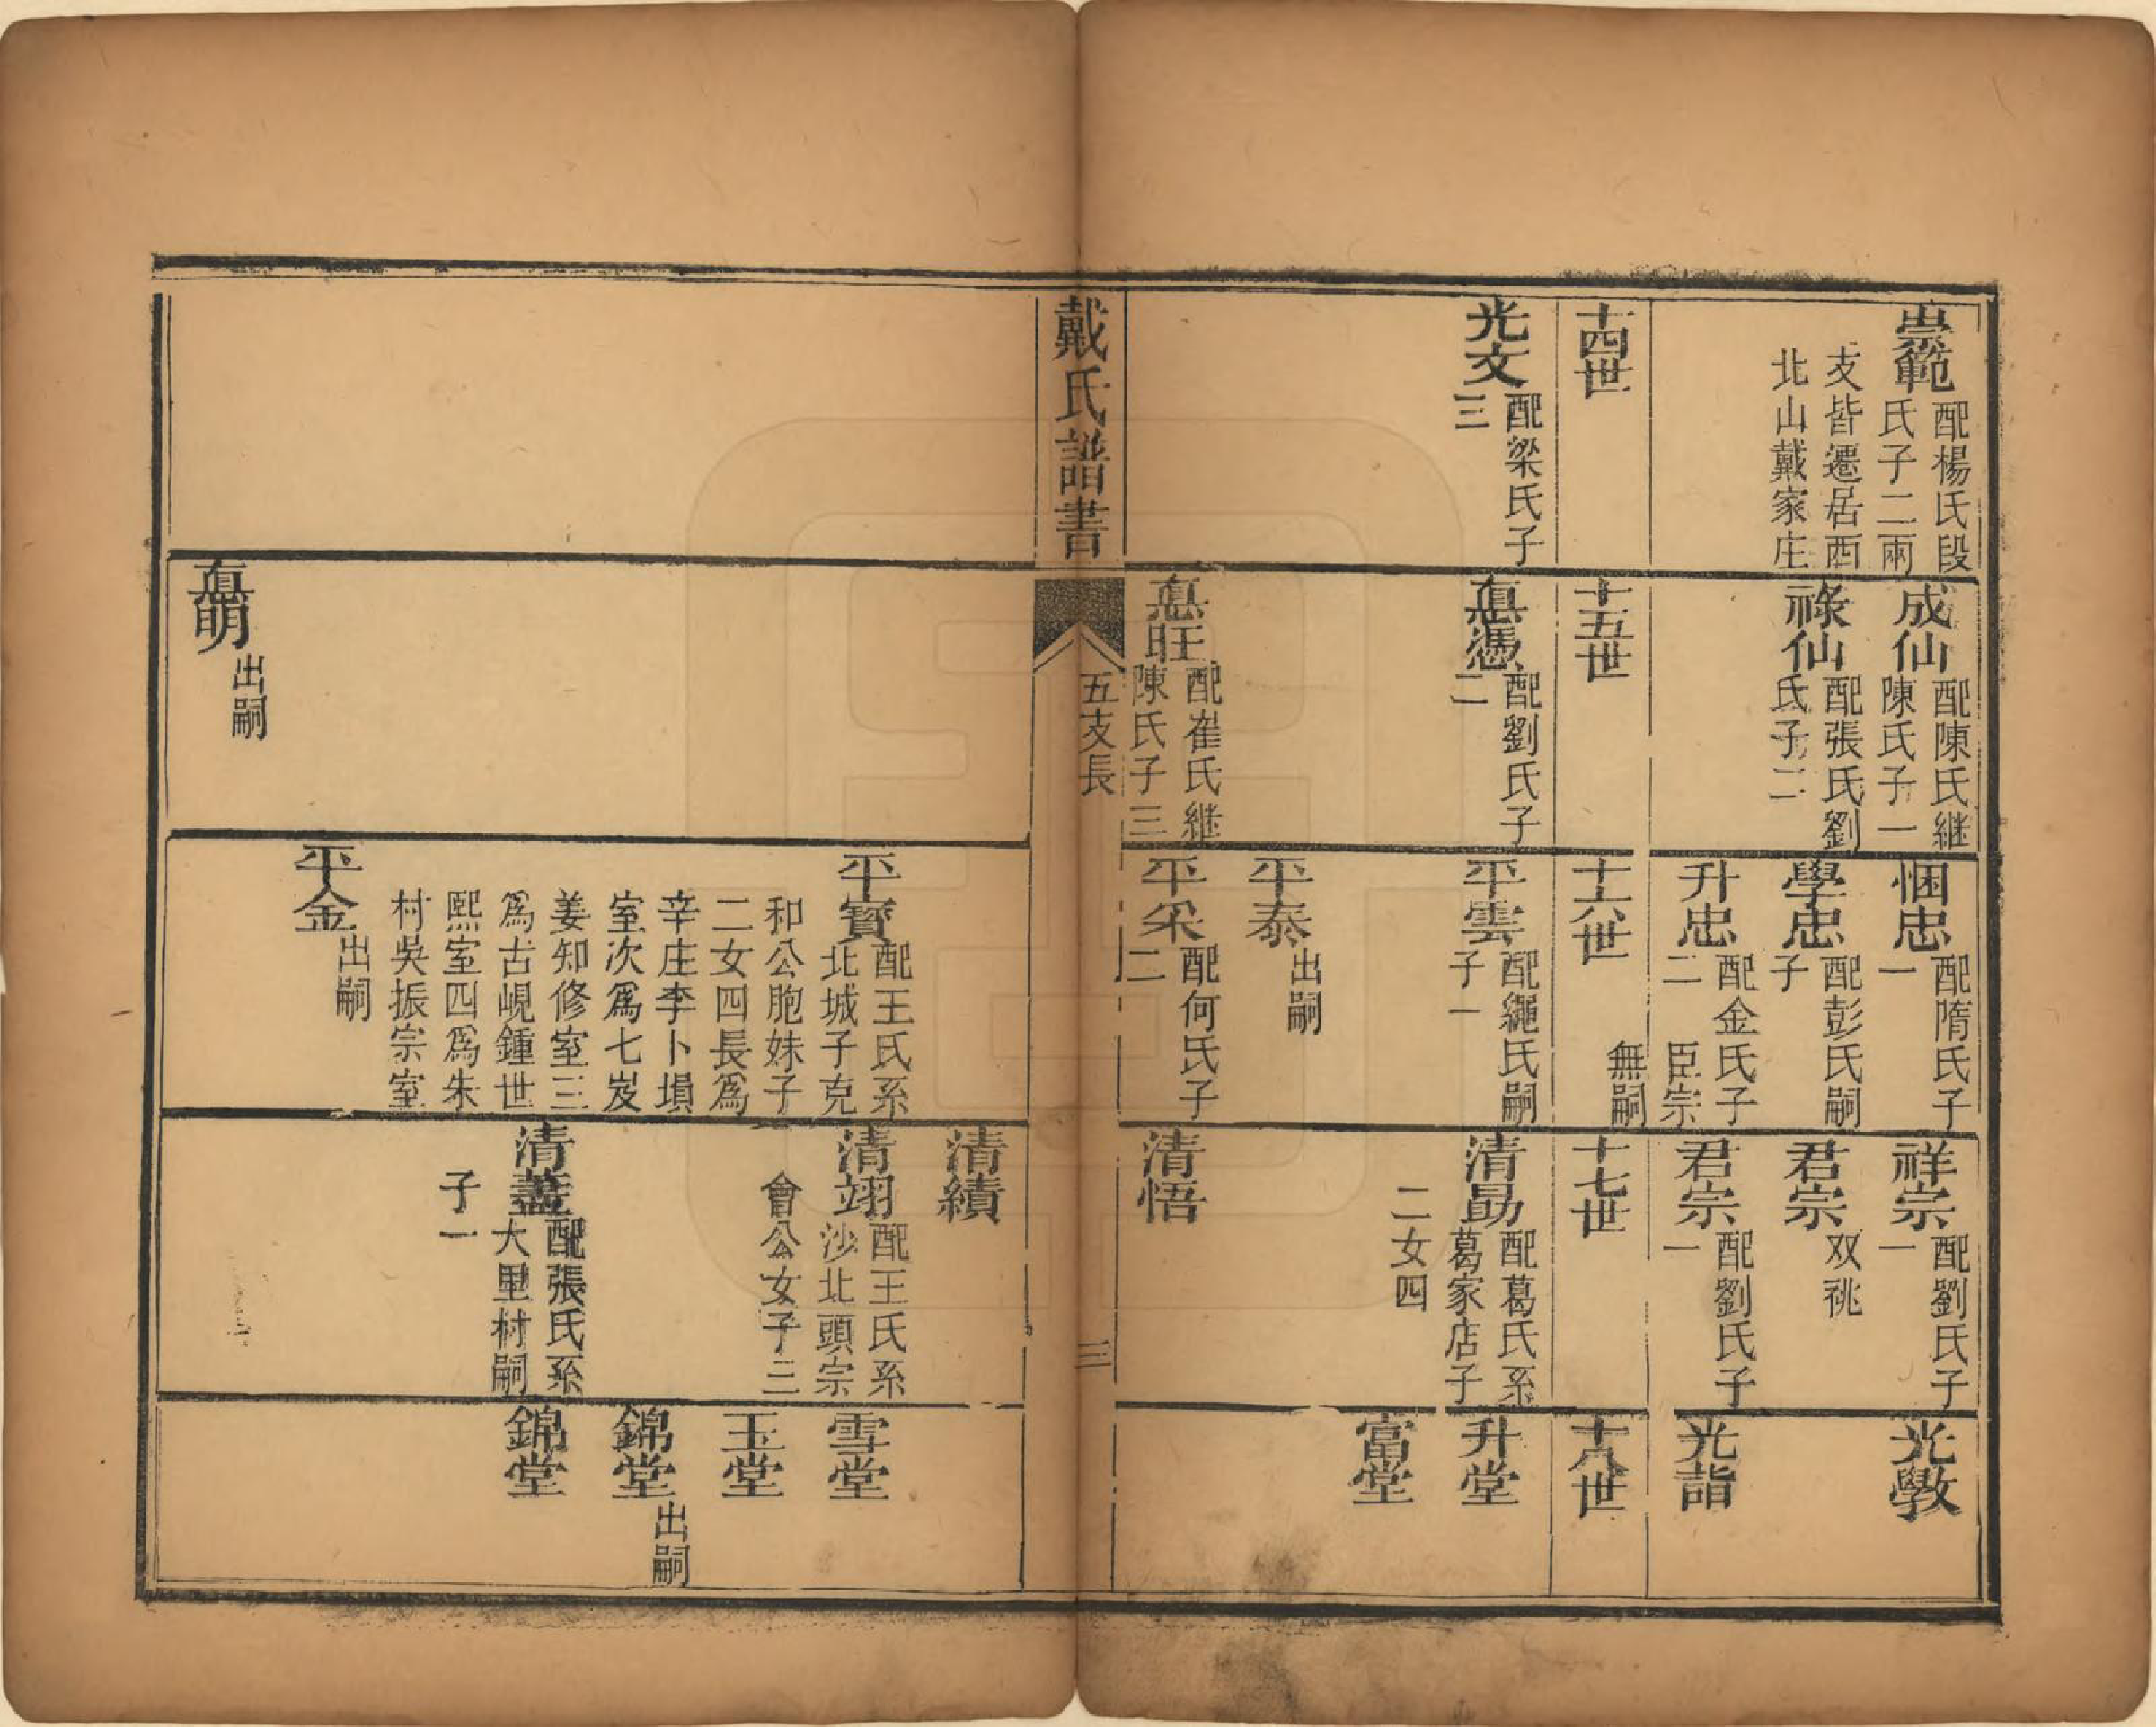 崇範
配楊氏段
氏子二兩
支皆遷居西
北山戴家庄
成仙
配陳氏継
陳氏子一
祿仙
配張氏劉
氏子二
悃忠
配隋氏子
一
學忠
配彭氏嗣
子
升忠
配金氏子
二
臣宗
無嗣
祥宗
配劉氏子
一
君宗
双祧
君宗
配劉氏子
一
光斆
光詣
十四世
十五世
十六世
十七世
十八世
光文
配梁氏子
三
惪憑
配劉氏子
二
惪旺
配崔氏継
陳氏子三
平雲
配繩氏嗣
子一
平泰
出嗣
平采
配何氏子
二
清勗
配葛氏系
葛家店子
二女四
清悟
升堂
富堂
戴氏譜書
五支長
三
惪明
出嗣
平寳
配王氏系
北城子克
和公胞妹子
二女四長爲
辛庄李卜塤
室次爲七岌
姜知修室三
爲古峴鍾世
熙室四爲朱
村吳振宗室
平金
出嗣
清績
清翊
配王氏系
沙北頭宗
會公女子三
清藎
配張氏系
大里村嗣
子一
雪堂
玉堂
錦堂
出嗣
錦堂